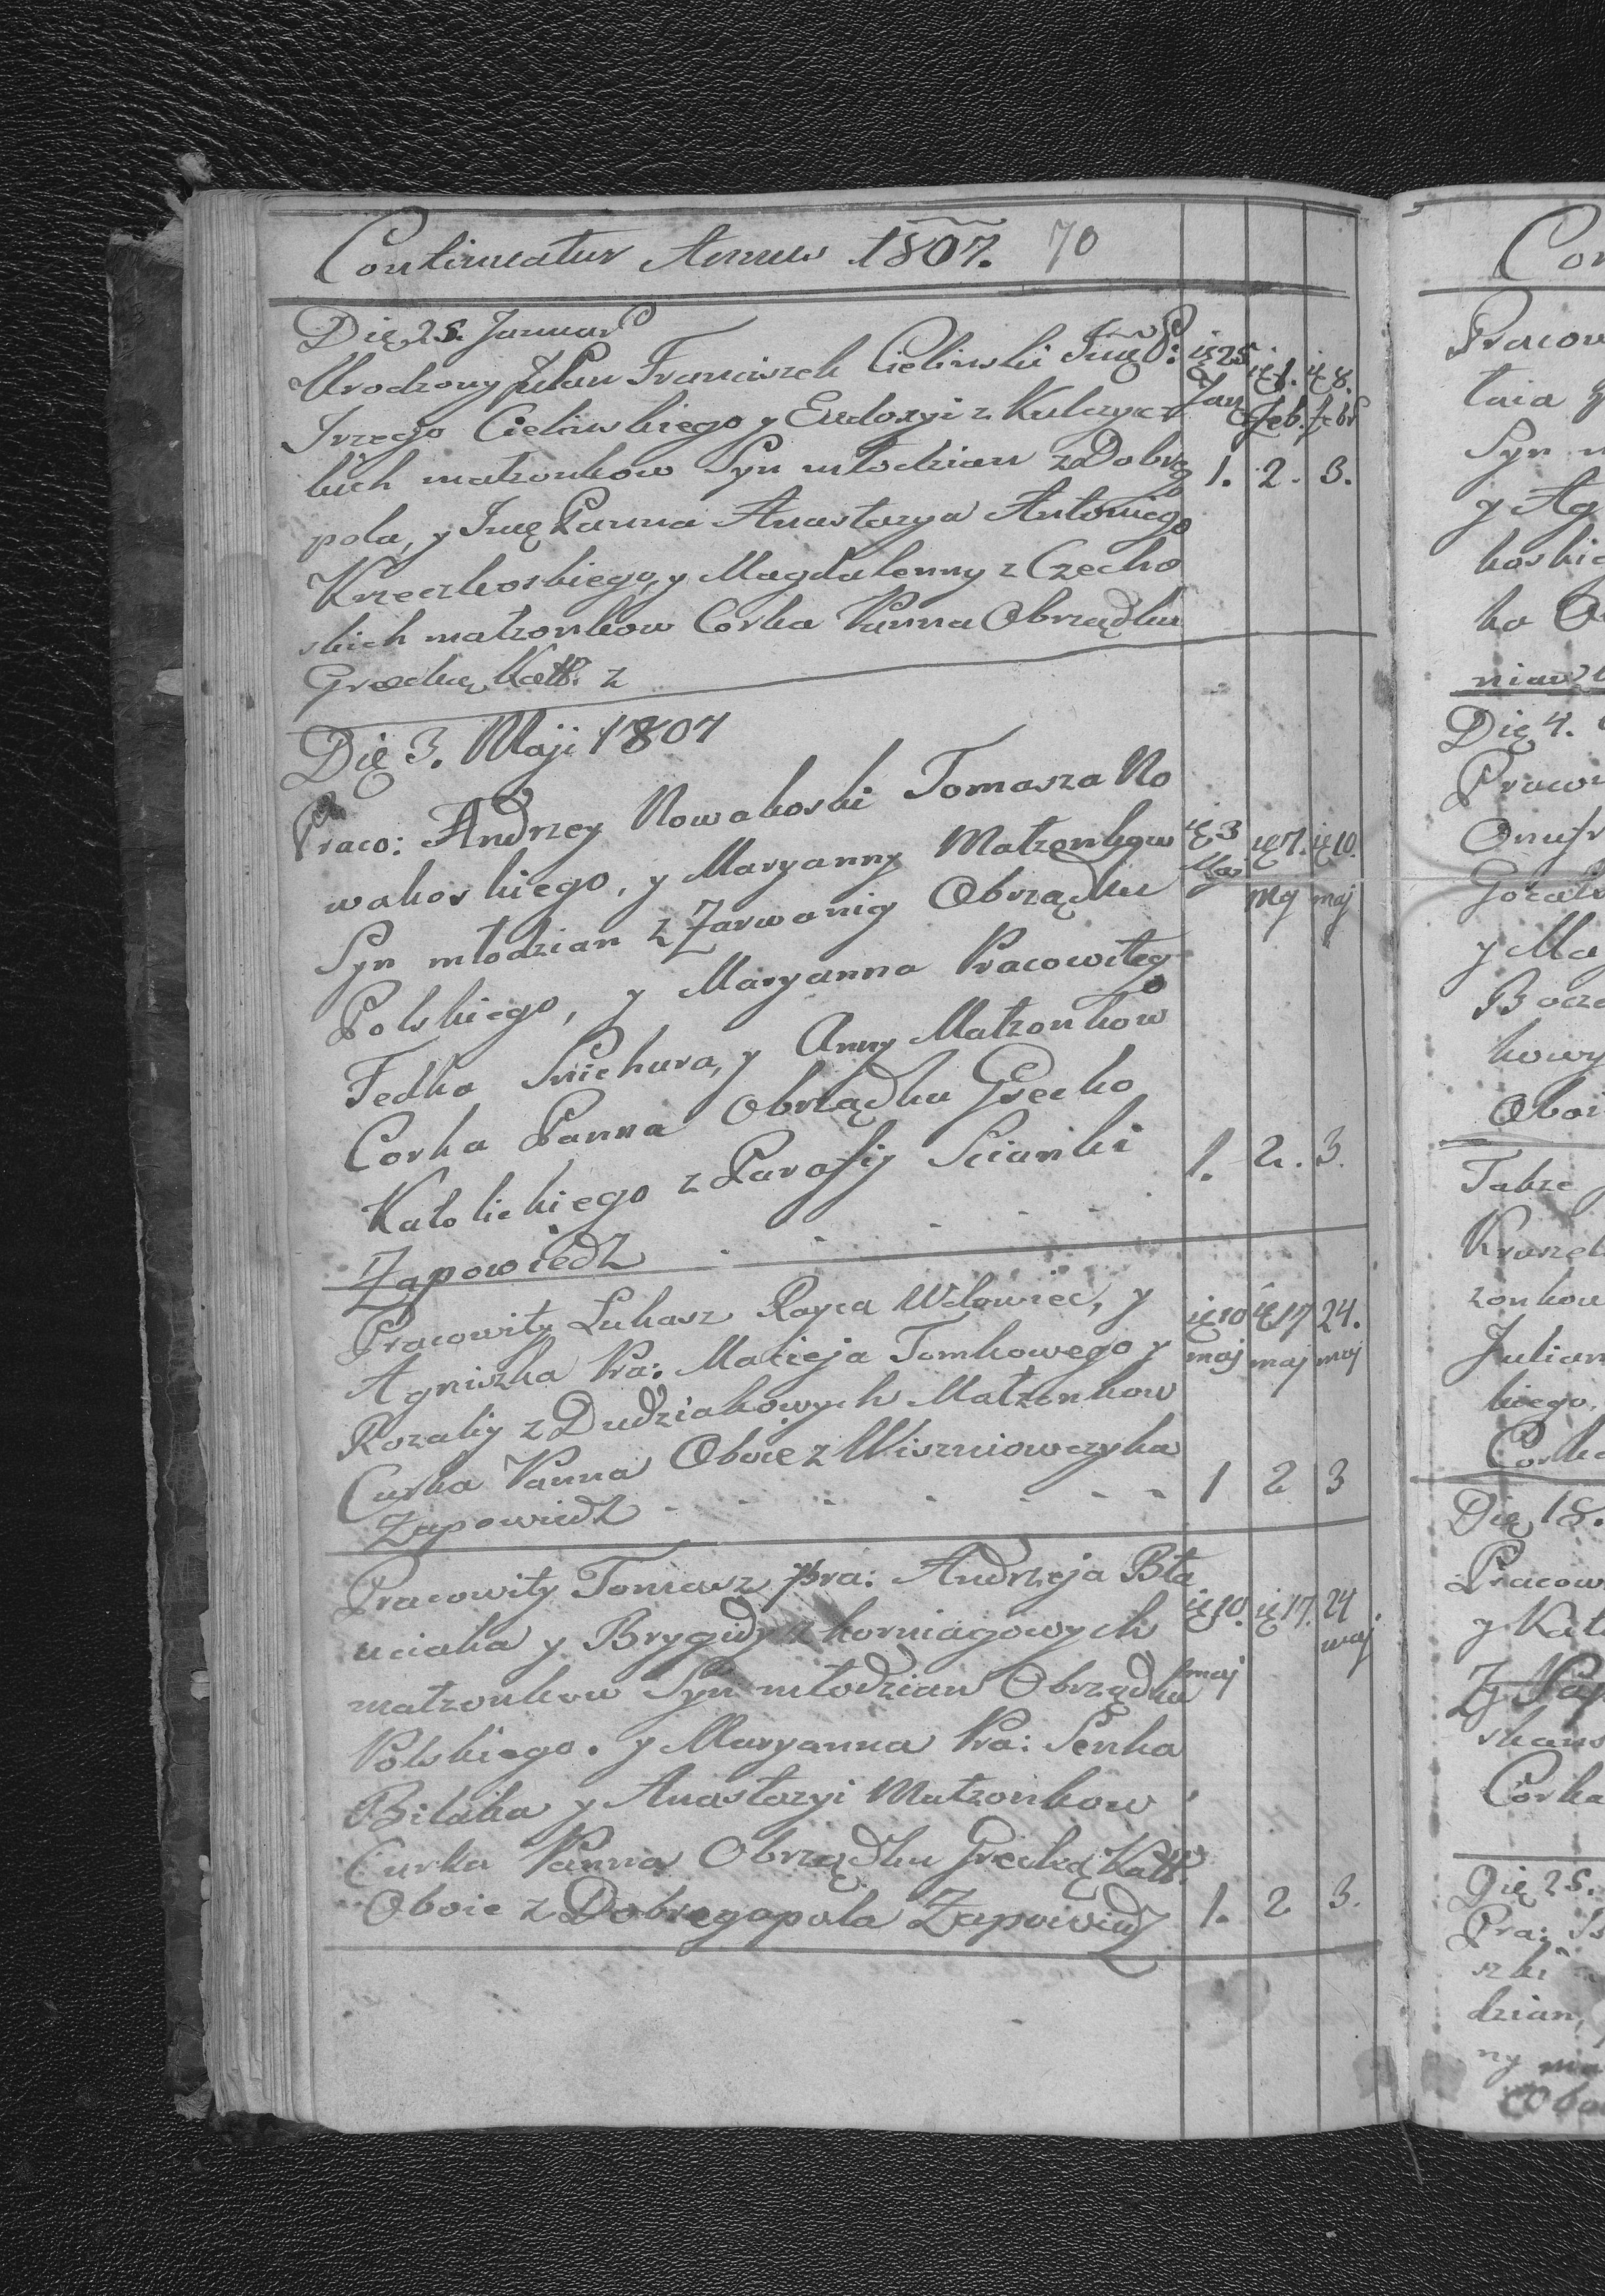 Continuatur Annus 1807. 70
Dię 25. Januar
Urodzony JPan Franciszek Cieliński Imę P:
Irzego Cielińskiego y Eudoxyi z Kulczyc
kich małzonkow Syn młodzian z Dobrego
pola, y Imę Panna Anastazya Antoniego
Krzeczkoskiego, y Magdalenny z Czecho
skich małzonkow Corka Panna Obrządku
Grecką Katt. z
ię 25 Jan ię 1. Feb. ię 8. febr
1. 2. 3.
Dię 3. Maji 1807
Praco: Andrzey Nowakoski Tomasza No
wakoskiego, y Maryanny Małzonkow
Syn młodzian z Zarwanicy Obrządku
Polskiego, y Maryanna Pracowitego
Fedka Snichura, y Anny Małzonkow
Corka Panna Obrządku Grecko
Katolickiego z Parafiy Scianki
Zapowiedz
ię 3 Maj ię 7. Mg ię 10. maj
1. 2. 3.
Pracowity Łukasz Rayca Wdowiec, y
Agniszka Pra: Macieja Tomkowego y
Rozaliy z Dudziakowych Małzonkow
Curka Panna Oboie z Wiszniowczyka
Zapowiedz
ię 10 maj ię 17 maj 24. maj
1 2 3
Pracowity Tomasz pra: Andrzeja Bła
uciaka y Brygidy z korniagowych
małzonkow Syn młodzian Obrządku
Polskiego. y Maryanna Pra: Senka
Bilaka y Anastazyi Małzonkow
Curka Panna Obrządku Grecką Katt.
Oboie z Dobregopola Zapowiedz
ię 10. maj ię 17. 24 maj
1. 2 3.
Con
Pracow
taia
Syn m
y Ag
koskie
ka O
niawz
Dię 4.
Pracow
Onufr
Gorals
y Ma
Bocz
kowy
Oboi
Takze
Kruszel
zonkow
Julian
kiego,
Corka
Dię 18.
Pracow
y Kat
skans
Corka
Dię 25.
Pra:
szki
dzian,
ny ma
Obo